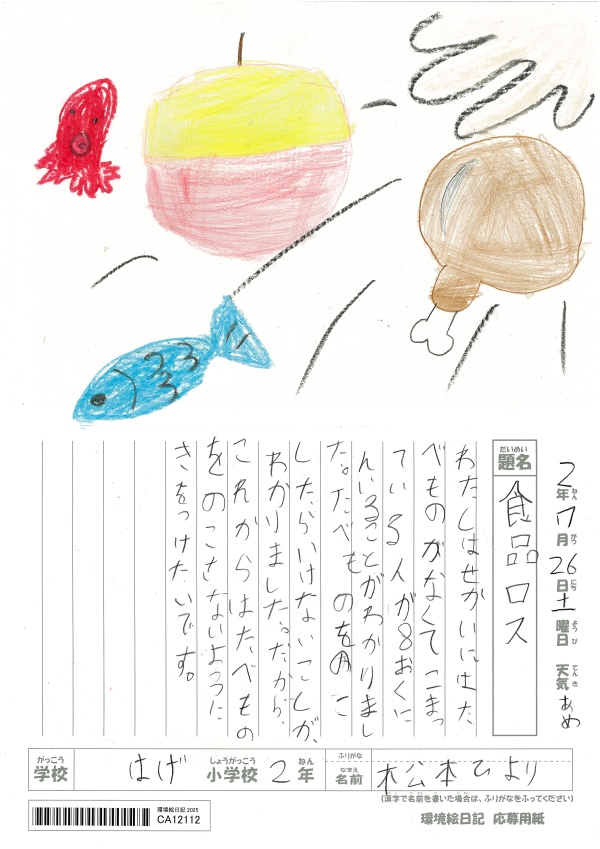 2年7月26日土曜日 天気あめ
ねん がつ にち ようび てんき
だいめい
題名
食品ロス
わたしはせかいにはた
べものがなくてこまっ
ている人が8おくに
んいることがわかりまし
た。たべものをのこ
したらいけないことが、
わかりました。だから、
これからはたべもの
をのこさないように
きをつけたいです。
がっこう しょうがっこう ねん ふりがな
学校 はげ 小学校 2年
なまえ
名前 松本ひより
(漢字で名前を書いた場合は、ふりがなをふってください)
環境絵日記 2025
CA12112
環境絵日記 応募用紙